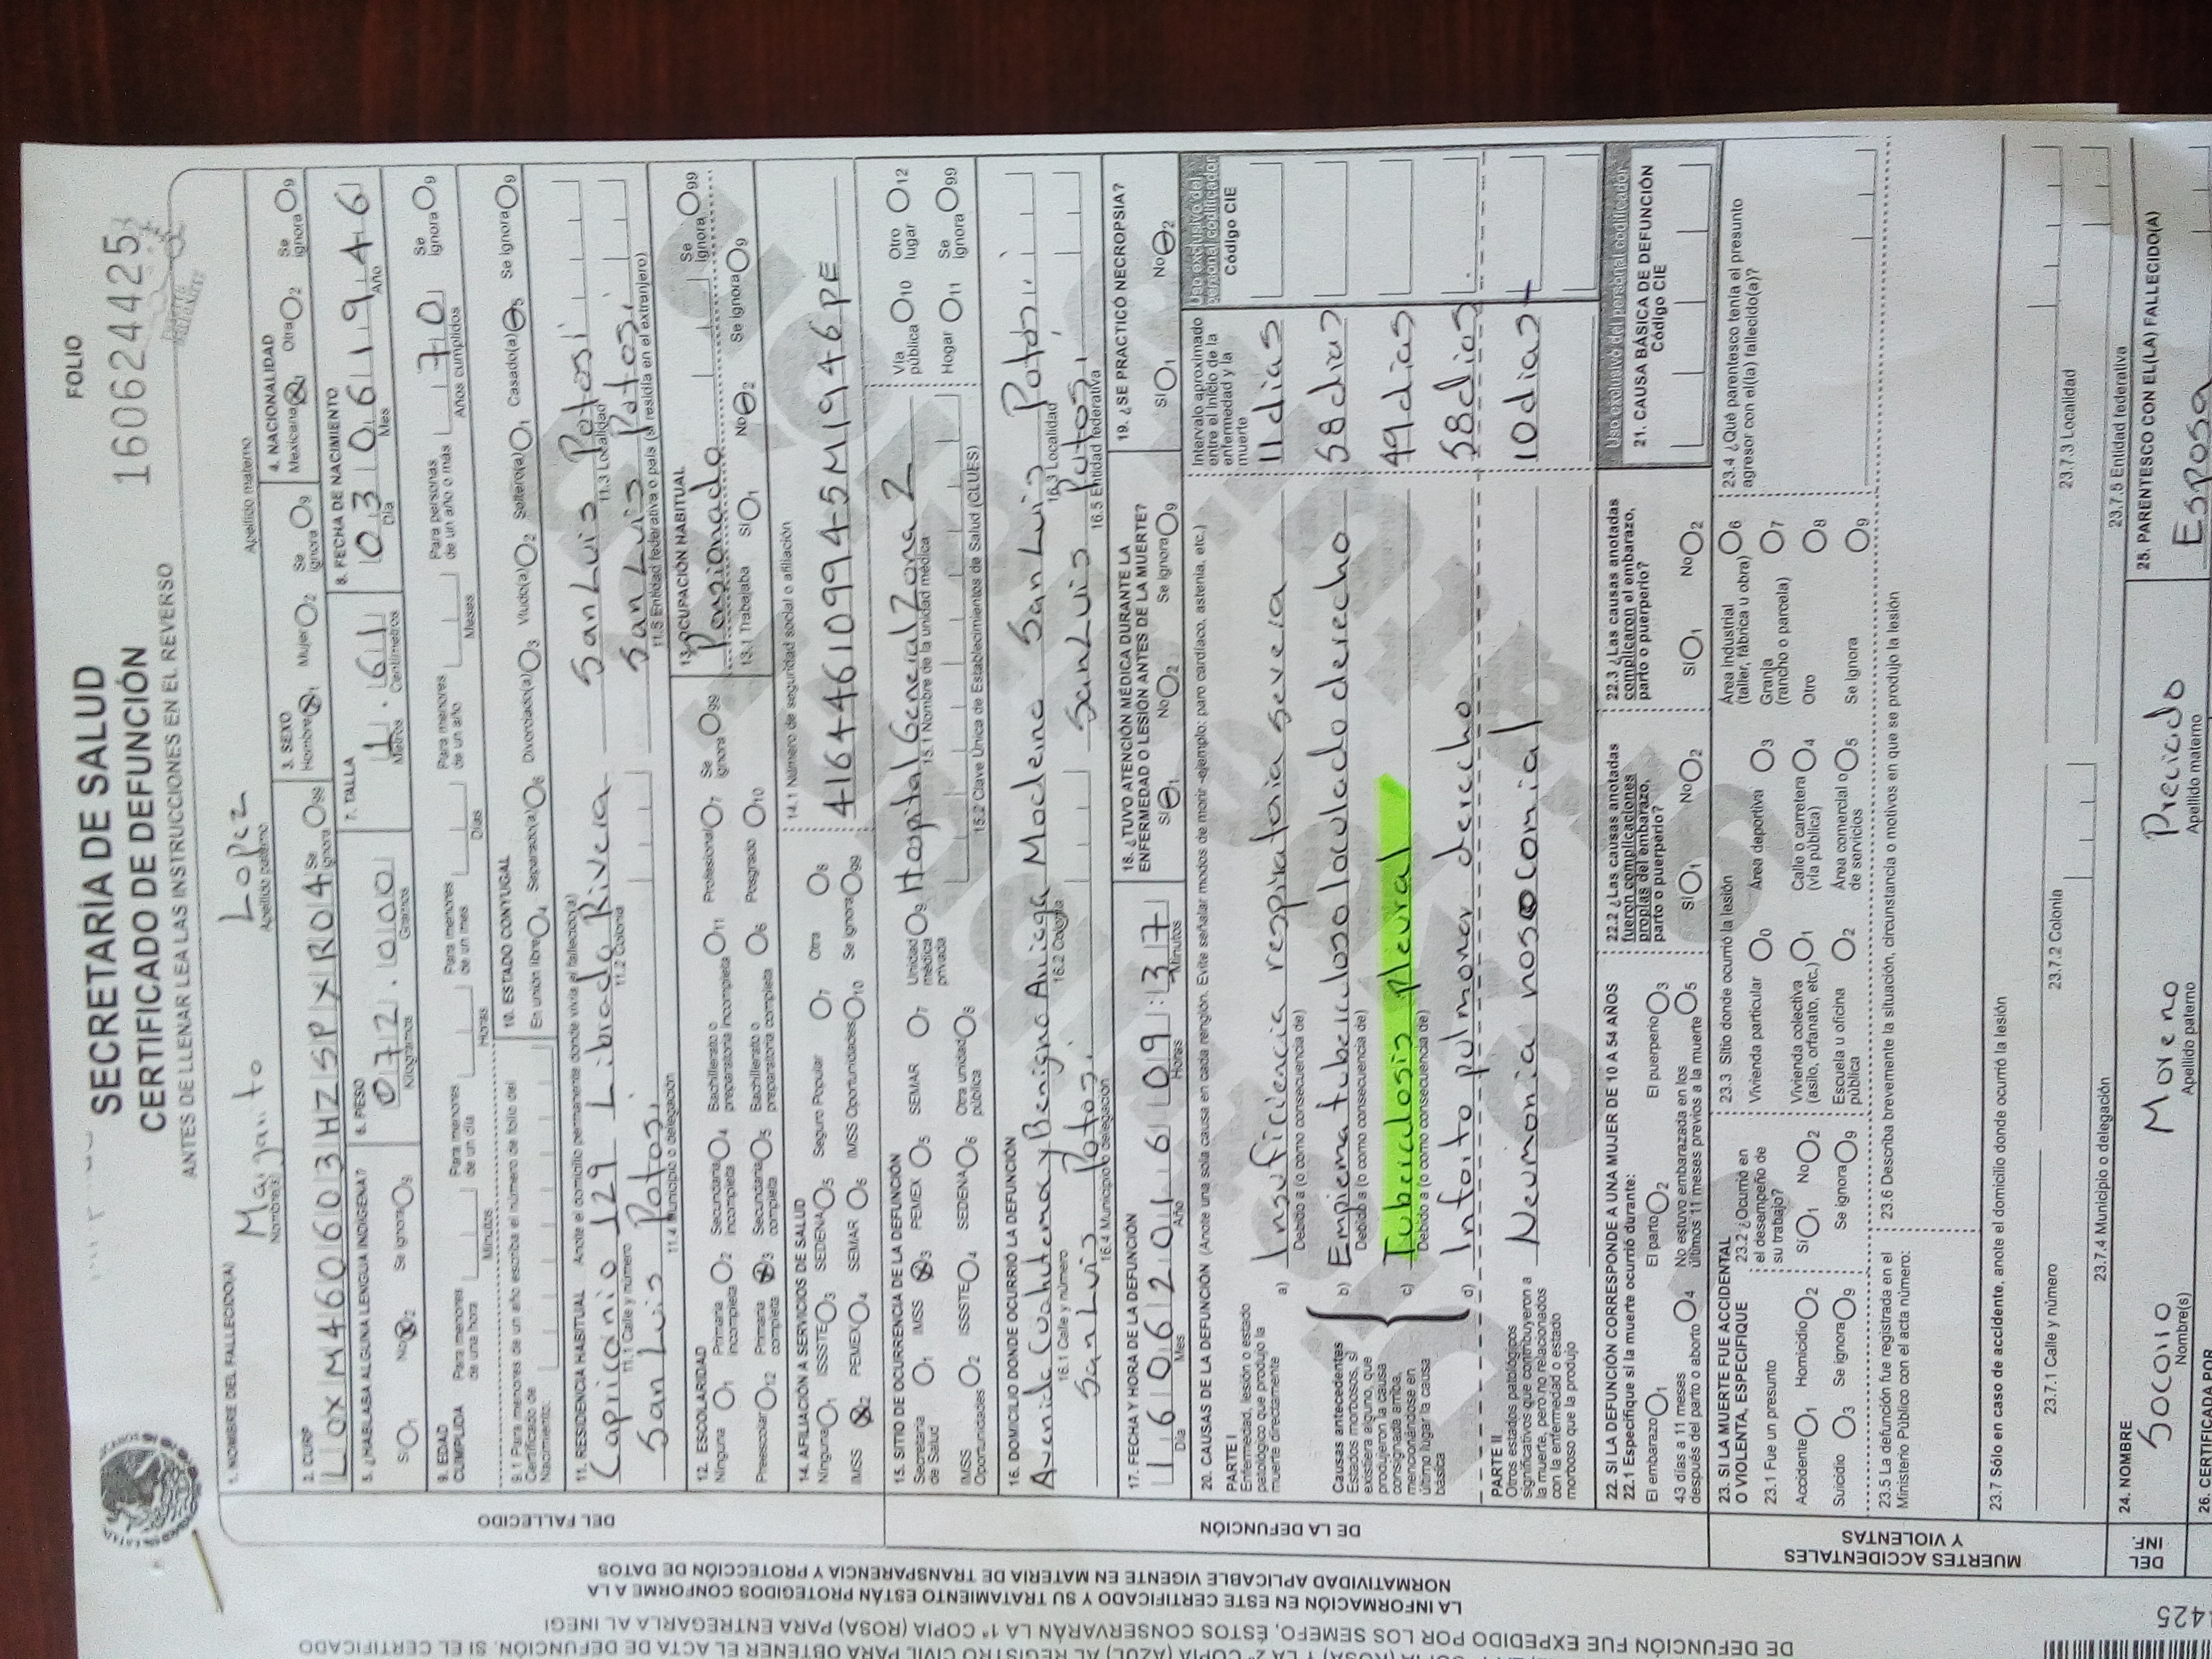 FOLIO
160624425
SECRETARÍA DE SALUD
CERTIFICADO DE DEFUNCIÓN
ANTES DE LLENAR LEA LAS INSTRUCCIONES EN EL REVERSO
DEL FALLECIDO
1. NOMBRE DEL FALLECIDO(A)
Margarito Lopez
Nombre(s) Apellido paterno Apellido materno
2. CURP
LOXM460603HZSPXR04 Se ignora 99
3. SEXO
Hombre 1 Mujer 2 Se ignora 9
4. NACIONALIDAD
Mexicana 1 Otra 2 Se ignora 9
5. ¿HABLABA ALGUNA LENGUA INDÍGENA?
Sí 1 No 2 Se ignora 9
6. PESO
072.000
Kilogramos Gramos
7. TALLA
1.61
Metros Centímetros
8. FECHA DE NACIMIENTO
03 06 1946
Día Mes Año
9. EDAD CUMPLIDA
Para menores de una hora Minutos
Para menores de un día Horas
Para menores de un mes Días
Para menores de un año Meses
Para personas de un año o más 70 Años cumplidos
Se ignora 9
9.1 Para menores de un año escriba el número de folio del Certificado de Nacimiento:
10. ESTADO CONYUGAL
En unión libre 4 Separado(a) 6 Divorciado(a) 3 Viudo(a) 2 Soltero(a) 1 Casado(a) 5 Se ignora 9
11. RESIDENCIA HABITUAL Anote el domicilio permanente donde vivía el fallecido(a)
Capricornio 129 Librado Rivera San Luis Potosí
11.1 Calle y número 11.2 Colonia 11.3 Localidad
San Luis Potosi San Luis Potosi
11.4 Municipio o delegación 11.5 Entidad federativa o país (si residía en el extranjero)
12. ESCOLARIDAD
Ninguna 1 Primaria incompleta 2 Secundaria incompleta 4 Bachillerato o preparatoria incompleta 11 Profesional 7 Se ignora 99
Preescolar 12 Primaria completa 3 Secundaria completa 5 Bachillerato o preparatoria completa 6 Posgrado 10
13. OCUPACIÓN HABITUAL
Pensionado Se ignora 99
13.1 Trabajaba Sí 1 No 2 Se ignora 9
14. AFILIACIÓN A SERVICIOS DE SALUD
Ninguna 1 ISSSTE 3 SEDENA 5 Seguro Popular 7 Otra 8
IMSS 2 PEMEX 4 SEMAR 6 IMSS Oportunidades 10 Se ignora 99
14.1 Número de seguridad social o afiliación
416446109945M1946PE
DE LA DEFUNCIÓN
15. SITIO DE OCURRENCIA DE LA DEFUNCIÓN
Secretaría de Salud 1 IMSS 3 PEMEX 5 SEMAR 7 Unidad médica privada 9
IMSS Oportunidades 2 ISSSTE 4 SEDENA 6 Otra unidad pública 8
Hospital General Zona 2
15.1 Nombre de la unidad médica
15.2 Clave Única de Establecimientos de Salud (CLUES)
Vía pública 10 Otro lugar 12
Hogar 11 Se ignora 99
16. DOMICILIO DONDE OCURRIÓ LA DEFUNCIÓN
Avenida Cuahutemoc y Benigno Arriaga Moderna San Luis Potosi
16.1 Calle y número 16.2 Colonia 16.3 Localidad
San Luis Potosi San Luis Potosi
16.4 Municipio o delegación 16.5 Entidad federativa
17. FECHA Y HORA DE LA DEFUNCIÓN
16 06 2016 09:37
Día Mes Año Horas Minutos
18. ¿TUVO ATENCIÓN MÉDICA DURANTE LA ENFERMEDAD O LESIÓN ANTES DE LA MUERTE?
Sí 1 No 2 Se ignora 9
19. ¿SE PRACTICÓ NECROPSIA?
Sí 1 No 2
20. CAUSAS DE LA DEFUNCIÓN (Anote una sola causa en cada renglón. Evite señalar modos de morir -ejemplo: paro cardiaco, astenia, etc.)
Intervalo aproximado entre el inicio de la enfermedad y la muerte
Uso exclusivo del personal codificador
Código CIE
PARTE I
Enfermedad, lesión o estado patológico que produjo la muerte directamente
a) Insuficiencia respiratoria severa 11 dias
Debido a (o como consecuencia de)
Causas antecedentes
Estados morbosos, si existiera alguno, que produjeron la causa consignada arriba, mencionándose en último lugar la causa básica
b) Empiema tuberculoso loculado derecho 58 dias
Debido a (o como consecuencia de)
c) Tuberculosis pleural 49 dias
Debido a (o como consecuencia de)
d) Infarto pulmonar derecho 58 dias
PARTE II
Otros estados patológicos significativos que contribuyeron a la muerte, pero no relacionados con la enfermedad o estado morboso que la produjo
Neumonia nosocomial 10 dias
Uso exclusivo del personal codificador
21. CAUSA BÁSICA DE DEFUNCIÓN
Código CIE
22. SI LA DEFUNCIÓN CORRESPONDE A UNA MUJER DE 10 A 54 AÑOS
22.1 Especifique si la muerte ocurrió durante:
El embarazo 1 El parto 2 El puerperio 3
43 días a 11 meses después del parto o aborto 4 No estuvo embarazada en los últimos 11 meses previos a la muerte 5
22.2 ¿Las causas anotadas fueron complicaciones propias del embarazo, parto o puerperio?
Sí 1 No 2
22.3 ¿Las causas anotadas complicaron el embarazo, parto o puerperio?
Sí 1 No 2
MUERTES ACCIDENTALES Y VIOLENTAS
23. SI LA MUERTE FUE ACCIDENTAL O VIOLENTA, ESPECIFIQUE
23.1 Fue un presunto
Accidente 1 Homicidio 2
Suicidio 3 Se ignora 9
23.2 ¿Ocurrió en el desempeño de su trabajo?
Sí 1 No 2
Se ignora 9
23.3 Sitio donde ocurrió la lesión
Vivienda particular 0 Área deportiva 3 Área industrial (taller, fábrica u obra) 6
Vivienda colectiva (asilo, orfanato, etc.) 1 Calle o carretera (vía pública) 4 Granja (rancho o parcela) 7
Escuela u oficina pública 2 Área comercial o de servicios 5 Otro 8
Se ignora 9
23.4 ¿Qué parentesco tenía el presunto agresor con el(la) fallecido(a)?
23.5 La defunción fue registrada en el Ministerio Público con el acta número:
23.6 Describa brevemente la situación, circunstancia o motivos en que se produjo la lesión
23.7 Sólo en caso de accidente, anote el domicilio donde ocurrió la lesión
23.7.1 Calle y número 23.7.2 Colonia 23.7.3 Localidad
23.7.4 Municipio o delegación 23.7.5 Entidad federativa
DEL INF.
24. NOMBRE
Socorro Moreno Preciado
Nombre(s) Apellido paterno Apellido materno
25. PARENTESCO CON EL(LA) FALLECIDO(A)
Esposa
26. CERTIFICADA POR
LA INFORMACIÓN EN ESTE CERTIFICADO Y SU TRATAMIENTO ESTÁN PROTEGIDOS CONFORME A LA
NORMATIVIDAD APLICABLE VIGENTE EN MATERIA DE TRANSPARENCIA Y PROTECCIÓN DE DATOS
DE DEFUNCIÓN FUE EXPEDIDO POR LOS SEMEFO, ÉSTOS CONSERVARÁN LA 1ª COPIA (ROSA) PARA ENTREGARLA AL INEGI
COPIA (ROSA) Y LA 2ª COPIA (AZUL) AL REGISTRO CIVIL PARA OBTENER EL ACTA DE DEFUNCIÓN. SI EL CERTIFICADO
4425